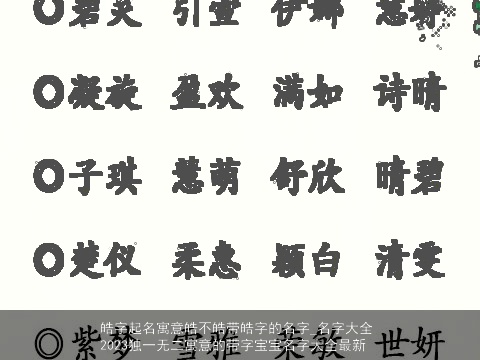 ◎碧 引 伊娜 慧妍
◎凝旋 盈欢 满如 诗晴
◎子琪 慧萌 舒欣 晴碧
◎楚仪 柔惠 颖白 清雯
皓字起名寓意皓不皓带皓字的名字_名字大全
2023独一无二寓意的带字宝宝名字大全最新
◎紫梦 雪雅 世妍